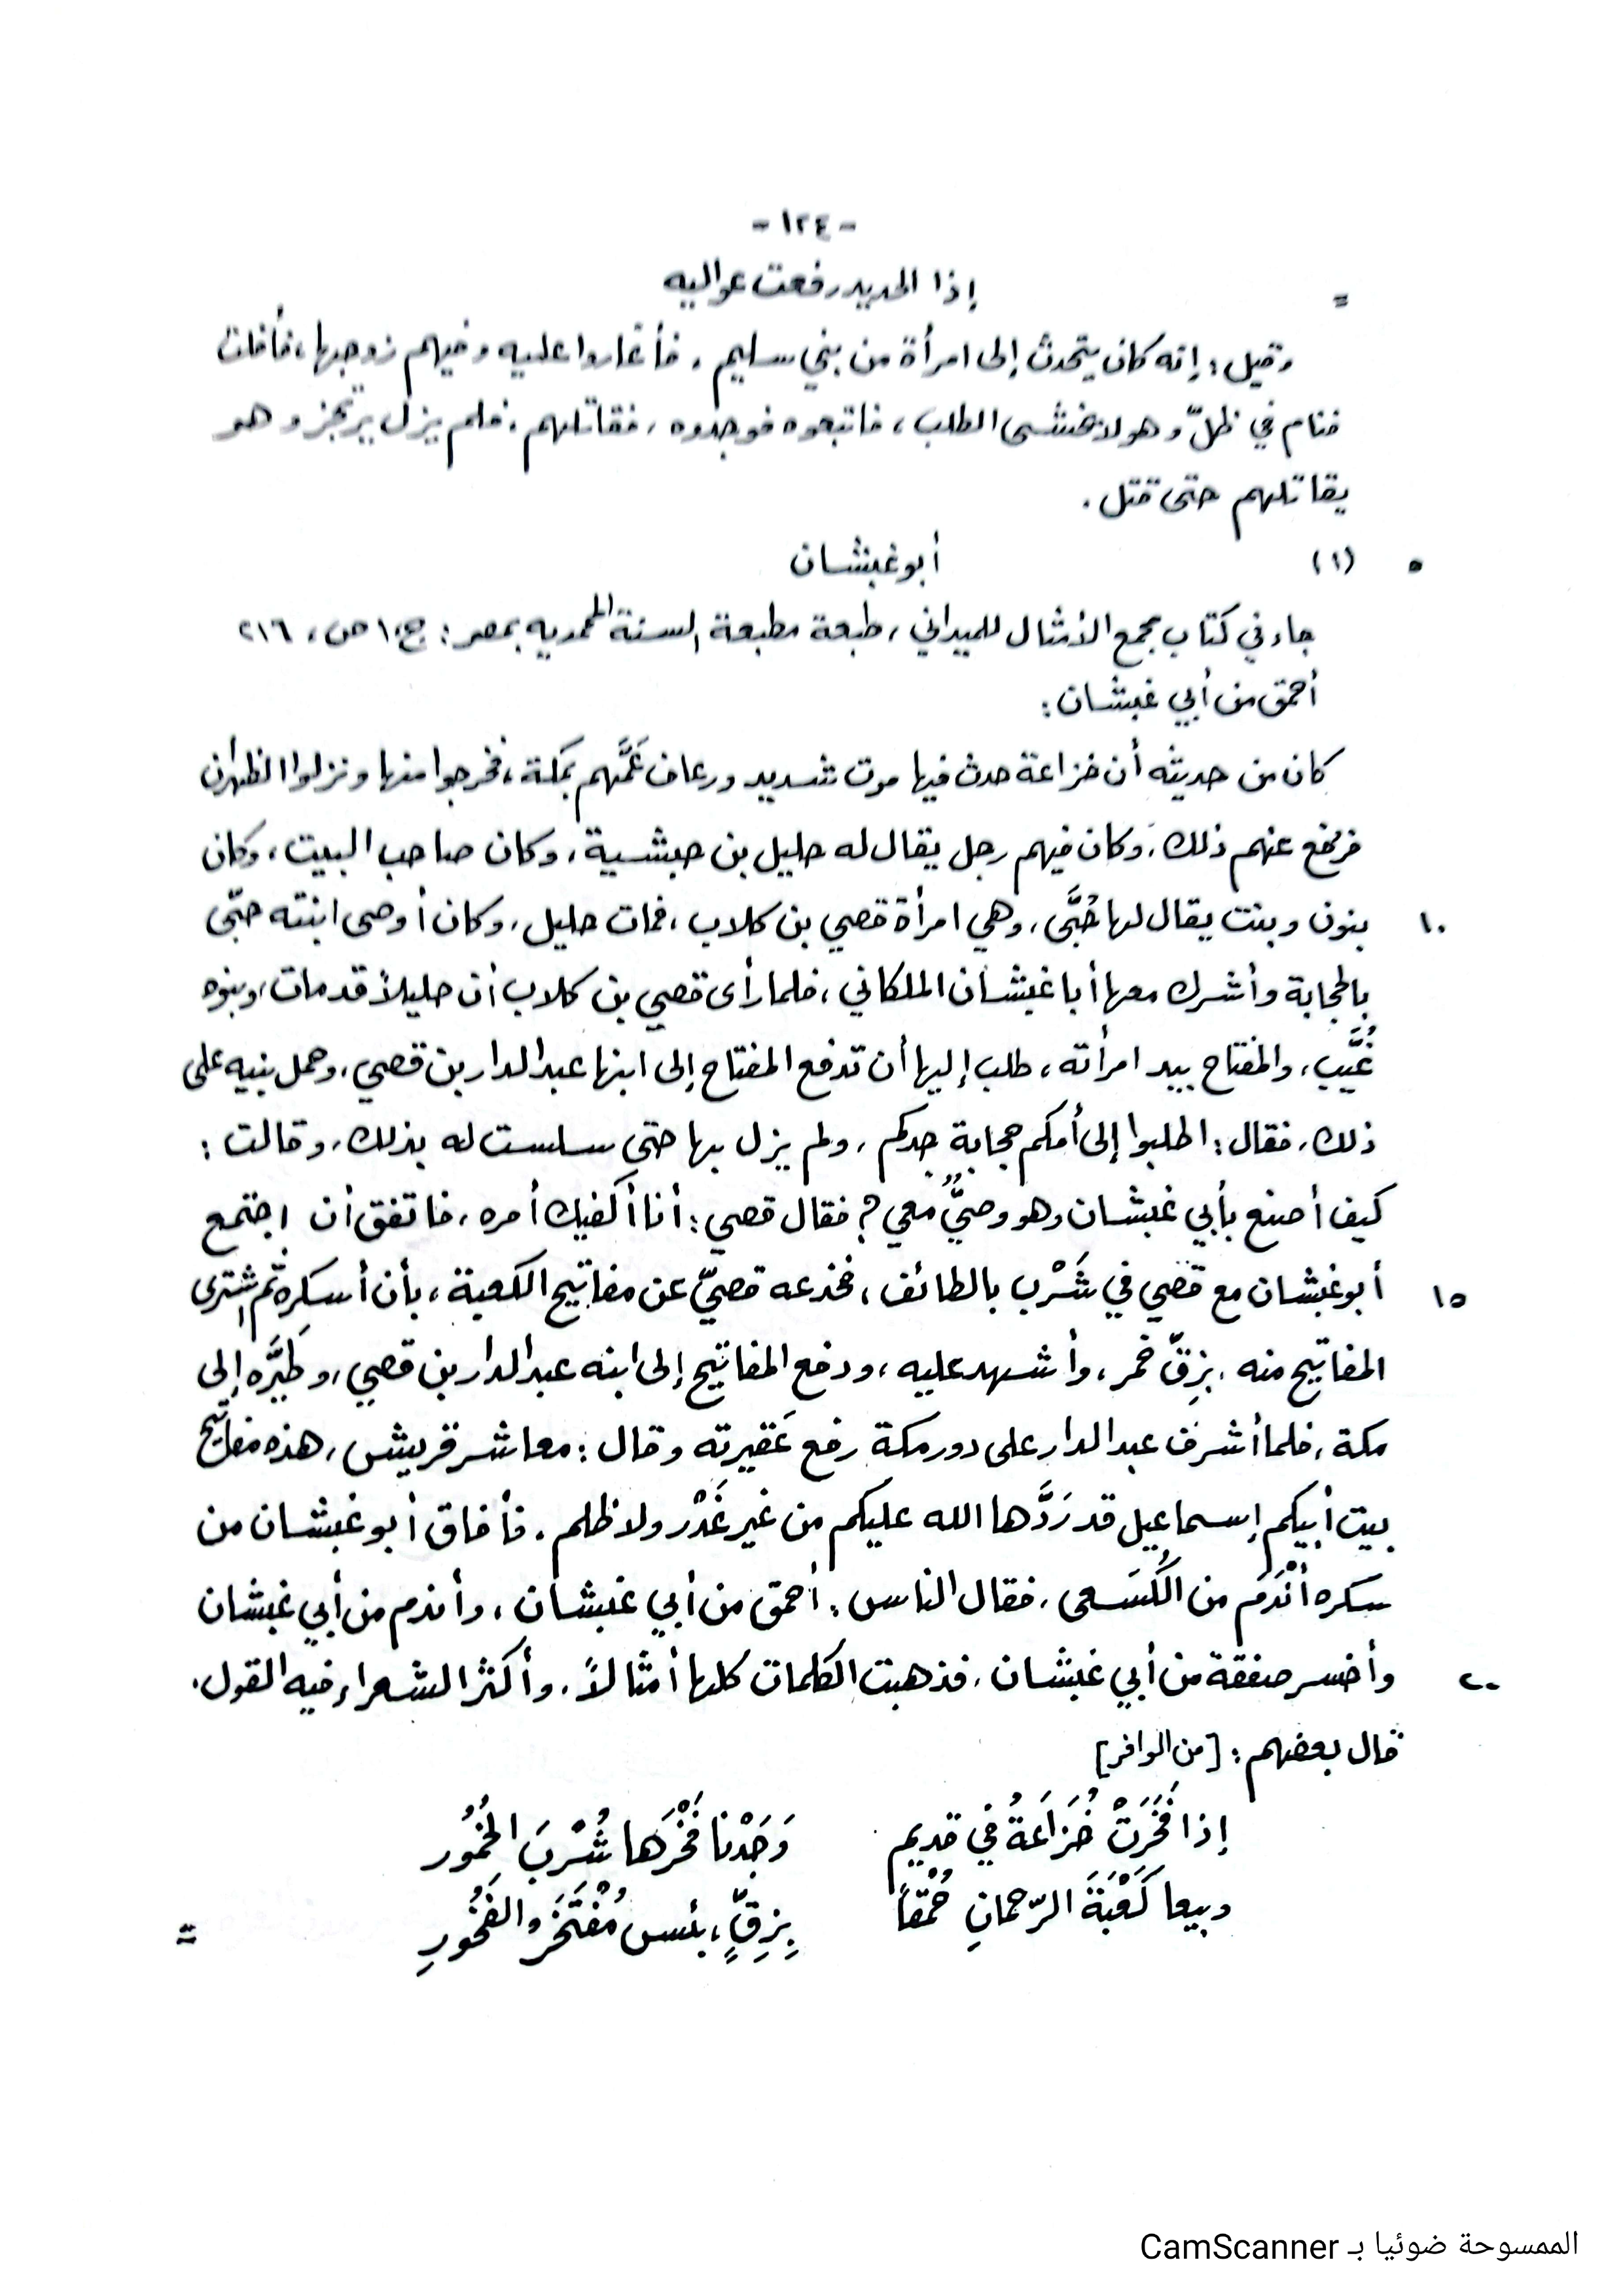 - ١٢٤ -
= إذا الحديد رفعت عواليه
وقيل : إنه كان يتحدث إلى امرأة من بني سليم ، فأغاروا عليه وفيهم زوجها ، فأفلت
فنام في ظلّ وهو لا يخشى الطلب ، فاتبعوه فوجدوه ، فقاتلهم ، فلم يزل يرتجز وهو
يقاتلهم حتى قتل .
٥ (١) أبو غبشان
جاء في كتاب مجمع الأمثال للميداني ، طبعة مطبعة السنة المحمديه بمصر : ج ، ١ ص ، ٢١٦
أحمق من أبي غبشان :
كان من حديثه أن خزاعة حدث فيها موت شديد ورعاف عَمَّهم بمكة ، فخرجوا منها ونزلوا الظهران
فرفع عنهم ذلك ، وكان فيهم رجل يقال له حليل بن حبشية ، وكان صاحب البيت ، وكان
١٠ بنون وبنت يقال لها حُبَّى ، وهي امرأة قصي بن كلاب ، فمات حليل ، وكان أوصى ابنته حبّى
بالحجابة وأشرك معها أبا غبشان الملكاني ، فلما رأى قصي بن كلاب أن حليلاً قد مات ، وبنوه
غُيَّب ، والمفتاح بيد امرأته ، طلب إليها أن تدفع المفتاح إلى ابنها عبد الدار بن قصي ، وحمل بنيه على
ذلك ، فقال : اطلبوا إلى أمكم حجابة جدكم ، ولم يزل بها حتى سلست له بذلك ، وقالت :
كيف أصنع بأبي غبشان وهو وصيٌّ معي ؟ فقال قصي : أنا أكفيك أمره ، فاتفق أن اجتمع
١٥ أبو غبشان مع قصي في شَرْب بالطائف ، فخدعه قصيّ عن مفاتيح الكعبة ، بأن أسكره ثم اشترى
المفاتيح منه بزِقّ خمر ، وأشهد عليه ، ودفع المفاتيح إلى ابنه عبد الدار بن قصي ، وطَيَّره إلى
مكة ، فلما أشرف عبد الدار على دور مكة رفع عَقيرته وقال : معاشر قريش ، هذه مفاتيح
بيت أبيكم إسماعيل قد رَدَّها الله عليكم من غير غَدْر ولا ظلم . فأفاق أبو غبشان من
سكره أنْدَمَ من الكُسَعى ، فقال الناس : أحمق من أبي غبشان ، وأندم من أبي غبشان
٢٠ وأخسر صفقة من أبي غبشان ، فذهبت الكلمات كلها أمثالاً ، وأكثر الشعراء فيه القول .
قال بعضهم : [من الوافر]
إذا فَخَرَتْ خُزَاعَةُ في قديم وَجَدْنا فَخْرَها شُرْبَ الخُمُور
وبيعا كَعْبَةَ الرّحمانِ حُمْقاً بِزِقٍّ ، بئس مُفْتَخَر والفَخُورِ =
الممسوحة ضوئيا بـ CamScanner